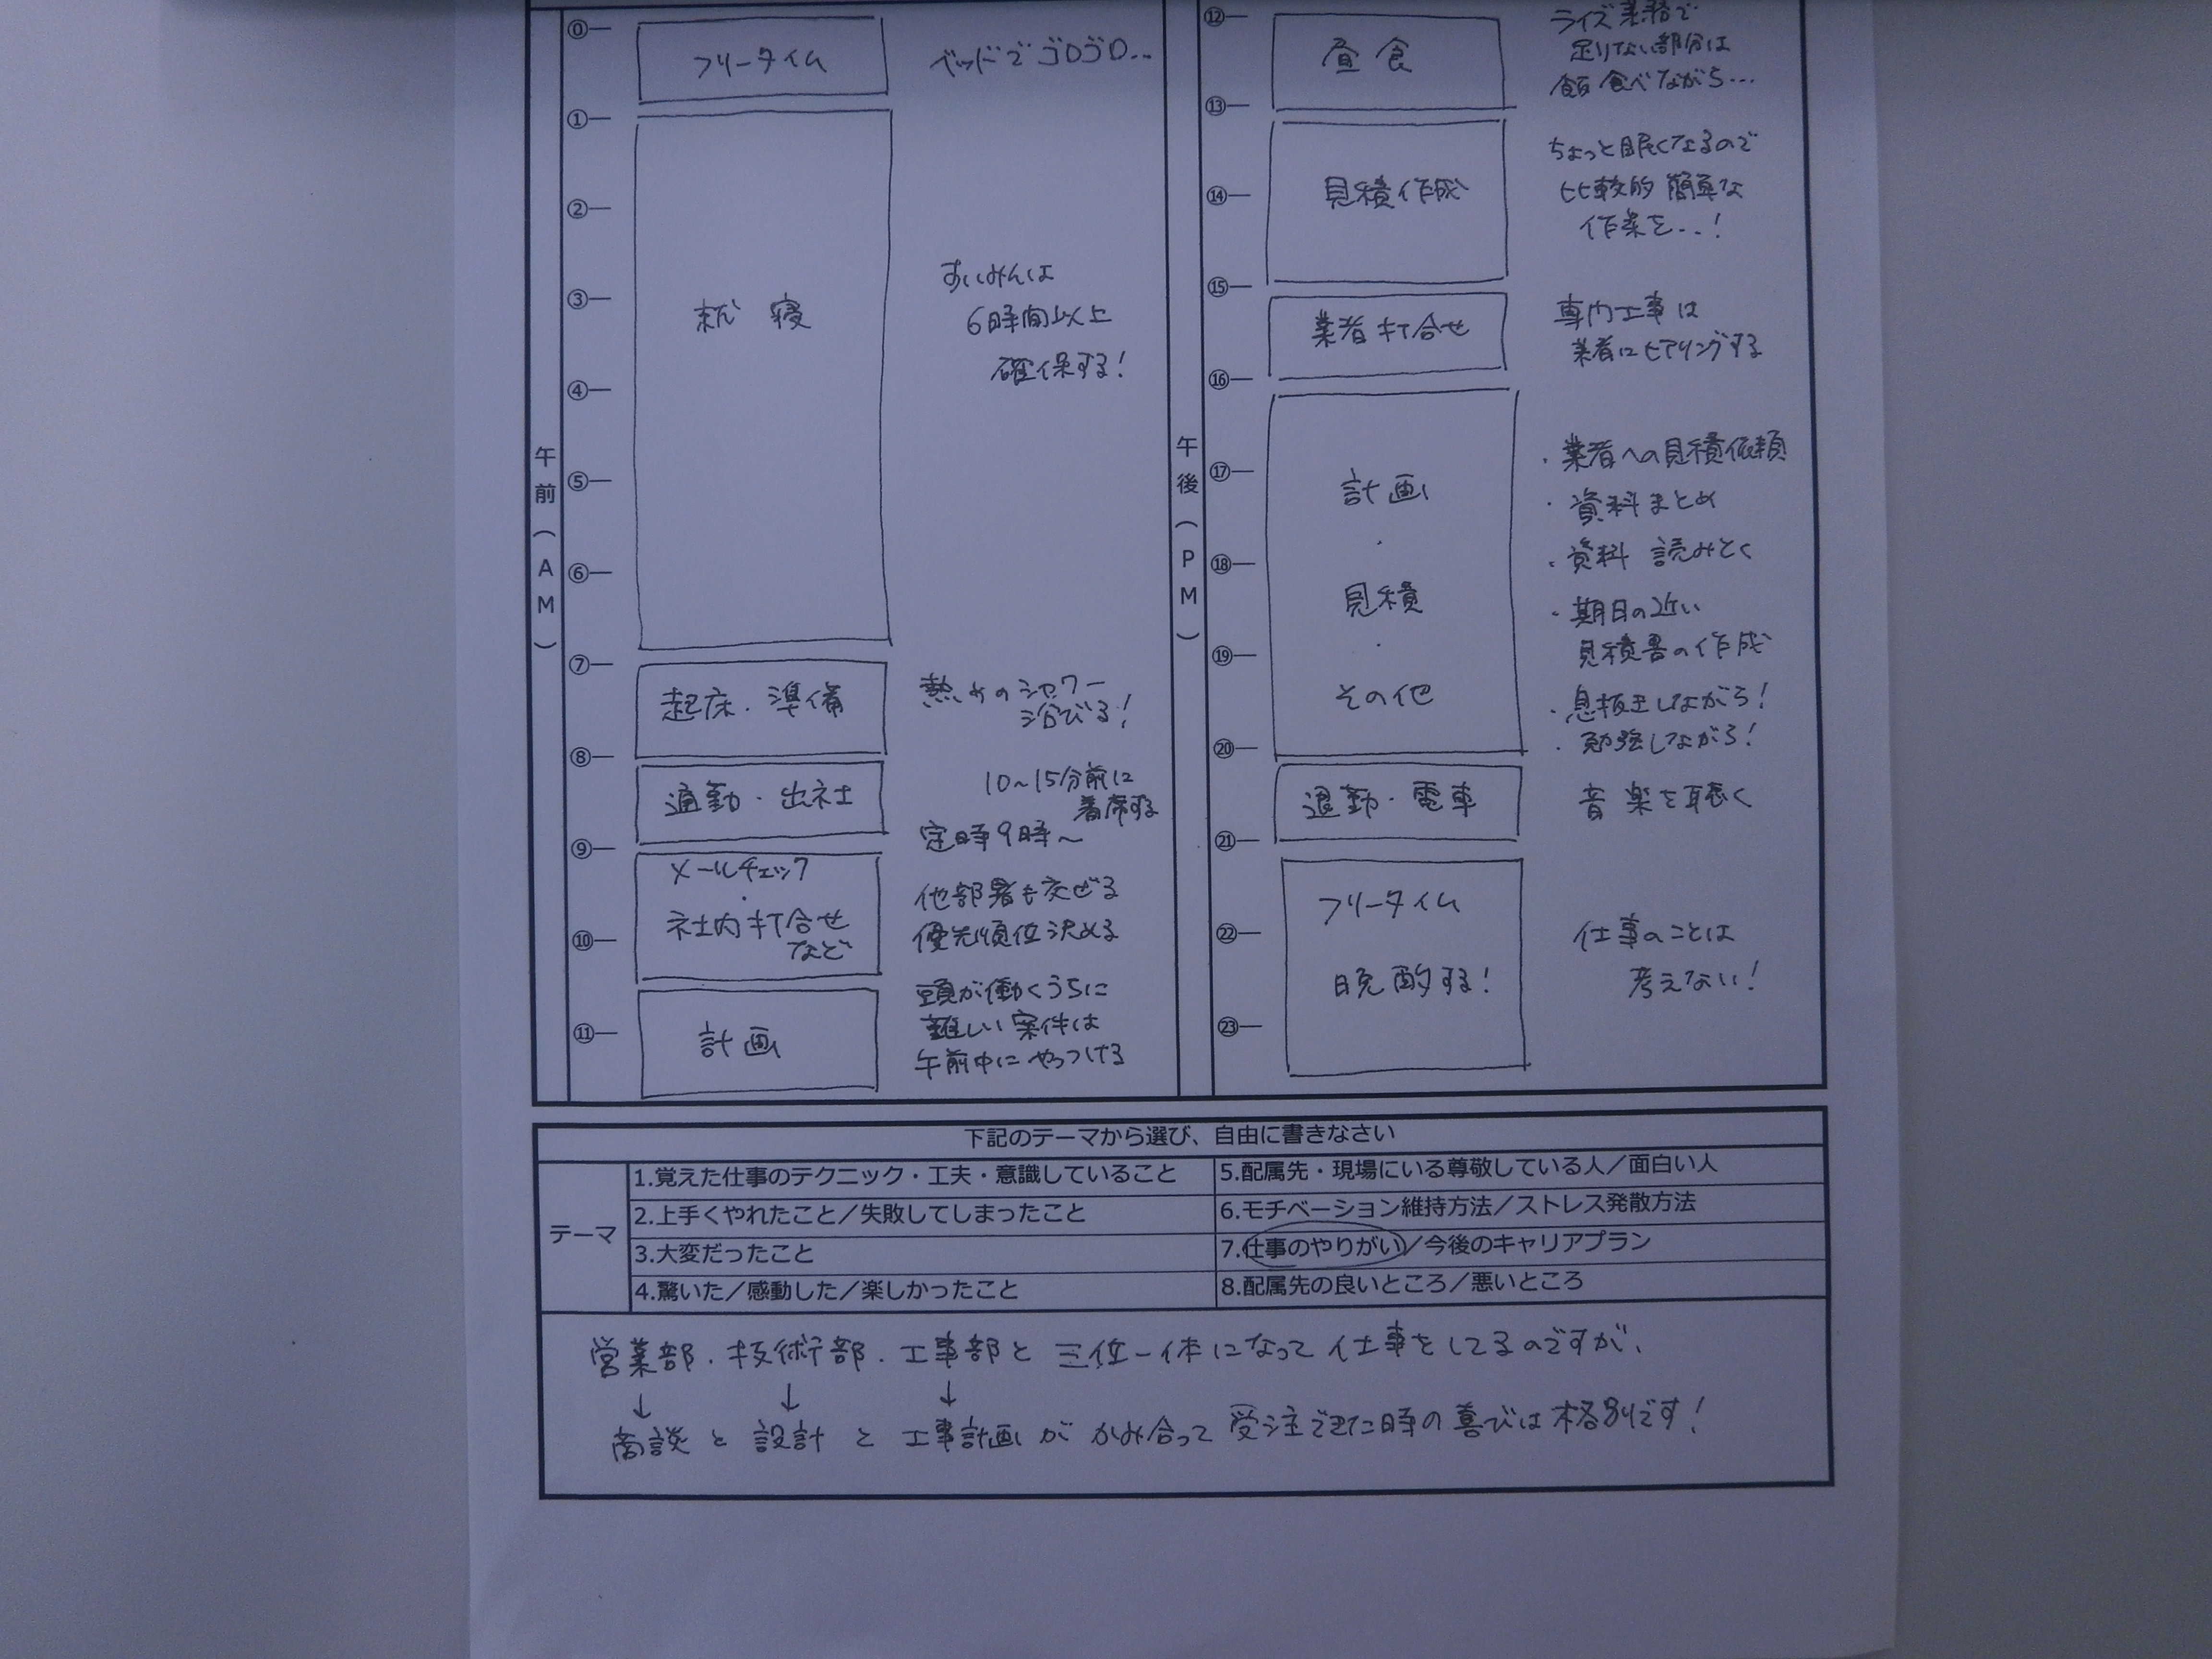 午前(AM)
⓪
フリータイム
ベッドでゴロゴロ...
①
②
③
④
⑤
⑥
就寝
すいみんは
6時間以上
確保する!
⑦
起床・準備
熱めのシャワー
浴びる!
⑧
通勤・出社
10~15分前に
着席する
定時9時~
⑨
メールチェック
・
社内打合せ
など
⑩
他部署も交ぜる
優先順位決める
⑪
計画
頭が働くうちに
難しい案件は
午前中にやっつける
午後(PM)
⑫
昼食
ライズ業務で
足りない部分は
飯食べながら...
⑬
見積作成
⑭
ちょっと眠くなるので
比較的簡単な
作業を...!
⑮
業者打合せ
専門工事は
業者にヒアリングする
⑯
⑰
計画
・
⑱
見積
・
⑲
その他
・業者への見積依頼
・資料まとめ
・資料読みとく
・期日の近い
見積書の作成
・息抜きしながら!
・勉強しながら!
⑳
退勤・電車
音楽を聴く
㉑
フリータイム
㉒
晩酌する!
㉓
仕事のことは
考えない!
下記のテーマから選び、自由に書きなさい
テーマ
1.覚えた仕事のテクニック・工夫・意識していること
2.上手くやれたこと/失敗してしまったこと
3.大変だったこと
4.驚いた/感動した/楽しかったこと
5.配属先・現場にいる尊敬している人/面白い人
6.モチベーション維持方法/ストレス発散方法
7.仕事のやりがい/今後のキャリアプラン
8.配属先の良いところ/悪いところ
営業部・技術部・工事部と三位一体になって仕事をしてるのですが、
↓ ↓ ↓
商談と設計と工事計画がかみ合って受注できた時の喜びは格別です!